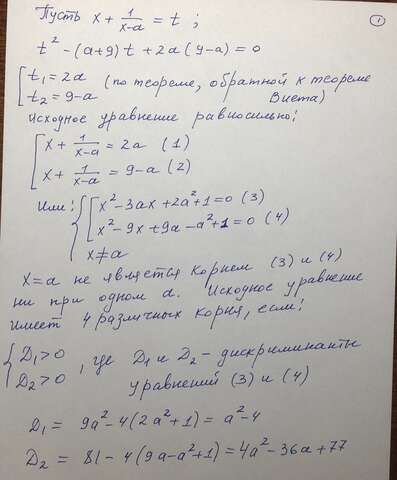 Пусть x + 1/(x-a) = t ;
①
t² - (a+9)t + 2a(9-a) = 0
[ t₁ = 2a (по теореме, обратной к теореме
t₂ = 9-a Виета)
Исходное уравнение равносильно:
[ x + 1/(x-a) = 2a (1)
x + 1/(x-a) = 9-a (2)
Или: { [ x² - 3ax + 2a² + 1 = 0 (3)
x² - 9x + 9a - a² + 1 = 0 (4)
x ≠ a
x = a не является корнем (3) и (4)
ни при одном a. Исходное уравнение
имеет 4 различных корня, если:
{ D₁ > 0 , где D₁ и D₂ - дискриминанты
D₂ > 0 уравнений (3) и (4)
D₁ = 9a² - 4(2a² + 1) = a² - 4
D₂ = 81 - 4(9a - a² + 1) = 4a² - 36a + 77